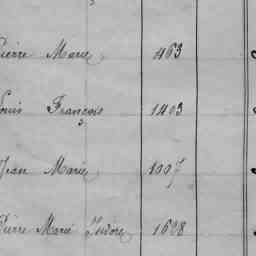 Pierre Marie 463
Louis François 1403
Jean Marie 1007
Pierre Marie Isidore 1608